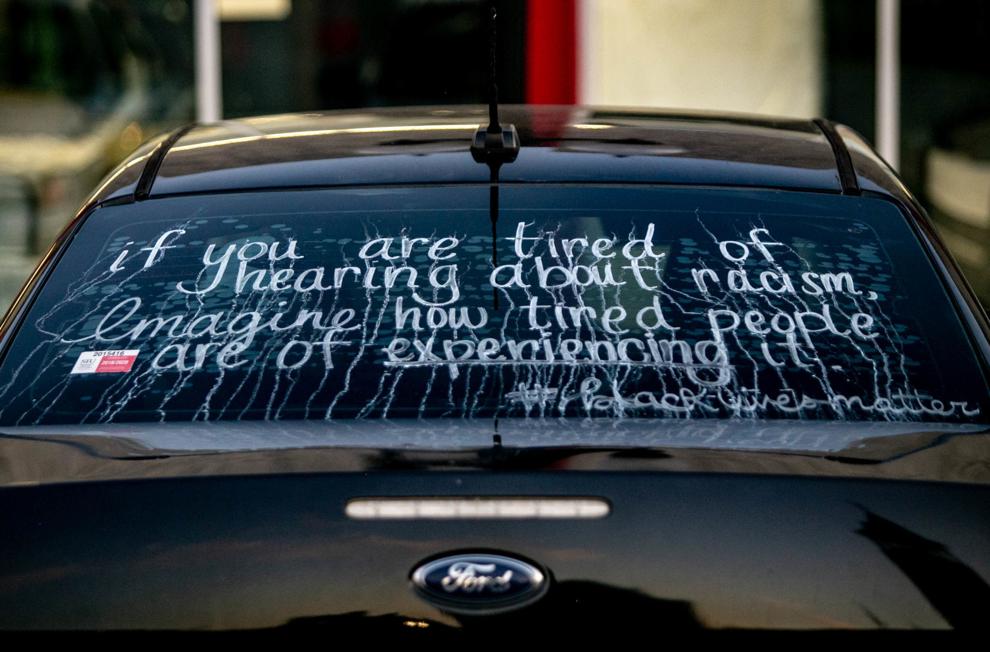 if you are tired of
hearing about racism,
Imagine how tired people
are of experiencing it.
#blacklivesmatter
2015416
Ford